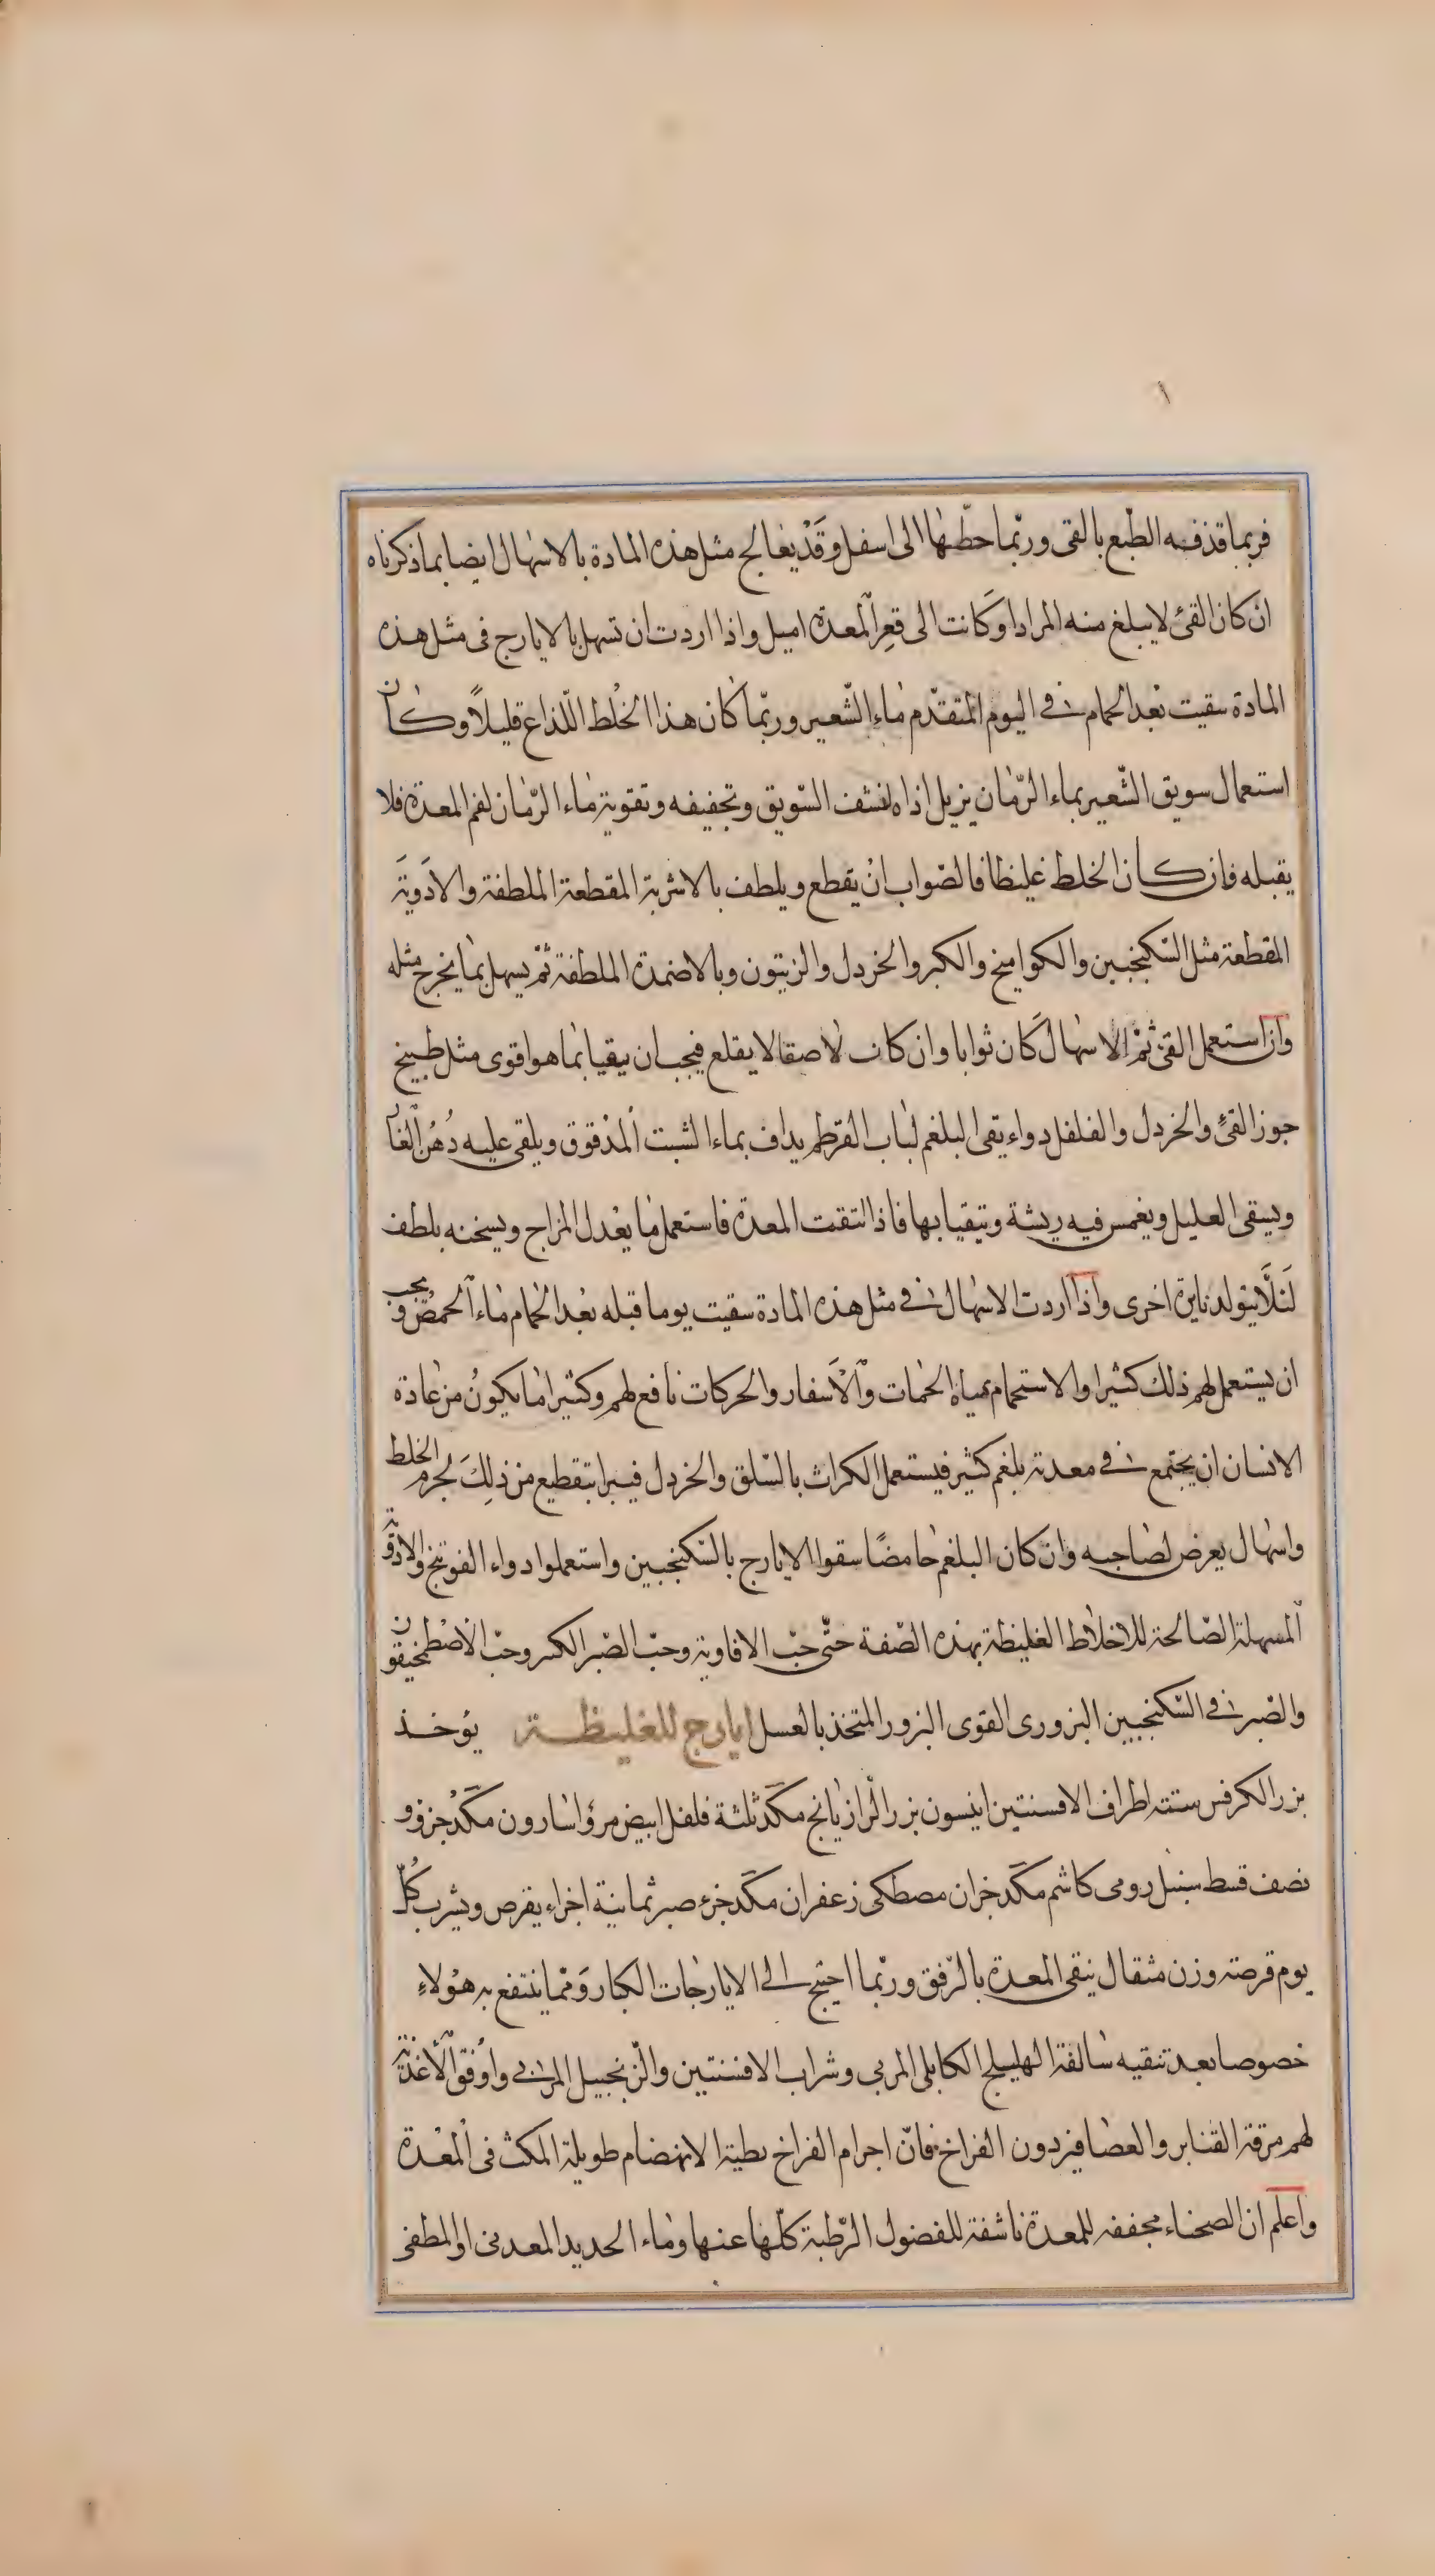 فربما قذفه الطبع بالقى وربّما حطّها الى اسفل وقَدْ يعالج مثل هذه المادة بالاسهال ايضا بما ذكرناه
ان كان القئ لا يبلغ منه المراد او كَانت الى قعرِ المعدة اميل واذا اردت ان تسهل بالايارج فى مثل هذه
المادة سقيت بَعد الحمام فى اليوم المتقدّم مَاء الشّعير وربّما كان هذا الخلط اللّذاع قليلاً وكان
استعمال سويق الشّعير بماء الرّمان يزيل اذاه لنشف السّويق وتجفيفه وتقوية مَاء الرّمان لفم المعدة فلا
يقبله فان كان الخلط غليظا فالصّواب انْ يقطع ويلطف بالاشربة المقطعة الملطفة والادَويَة
المقطعة مثل السّكنجبين والكواميخ والكبر والخردل والزيتون وبالاضمدة الملطفة ثمّ يسهل بما يخرج مثله
وان استعمل القئ ثمّ الاسهال كَان ثوابا وان كان لاصقا لا يقلع فيجب ان يقيا بما هو اقوى مثل طبيخ
جوز القئ والخردل والفلفل دواء يقى البلغم لباب القرطم يداف بماء الشبت المذقوق ويلقى عليه دُهن الغار
ويسقى العليل ويغمس فيه ريشة ويتقيا بها فاذا انتقت المعدة فاستعمل ما يعْدل المزاج ويسخنه بلطف
لَئلَّا يتولد نايرة اخرى واذا اردت الاسهال فى مثل هذه المادة سقيت يوما قبله بَعْد الحمام مَاء الحمص ويجب
ان يستعمل لهم ذلك كثيرا والاستحمام بمياه الحمات وَالاَسفار والحركات نافع لهم وكثيرا ما يكونُ من عَادة
الانسان ان يجتمع فى معدته بلغم كثير فيستعمل الكراث بالسّلق والخردل فيبرا بتقطيع من ذلِكَ لجرم الخلط
واسهال يعرض لصاحبه وَان كان البلغم حَامضًا سقوا الايارج بالسّكنجبين واستعملوا دواء الفوتنج والادوية
المسهلة الصّالحة للاخلاط الغليظة بهذه الصّفة حتّى حبّ الافاوية وحبّ الصّبر الكبير وحبّ الاصْطمخيقون
والصّبر فى السّكنجبين البزورى القوى البزور المتخذ بالعسل ايارج للغليظة يؤخذ
بزر الكرفس ستة اطراف الافسنتين انيسون بزر الرّازيَانج مكَد ثلثة فلفل ابيض مرّ واسارون مكَد جزؤ و
نصف قسط سنبل رومى كاشم مكَد جزان مصطكى زعفران مكَد جزء صبر ثمانية اجزاء يقرص ويشرب كُلّ
يوم قرصة وزن مثقال ينقى المعدة بالرّفق وربّما احتيج الى الايارجات الكبار وَممّا ينتفع به هؤلاءِ
خصوصا بعد تنقيه سَالفة الهليلج الكابلى المربى وشراب الافسنتين والزّنجبيل المربى واوُفق الاغذية
لهم مرقة القنابر والعصَافير دون الفراخ فانّ اجرام الفراخ بطية الانهضام طويلة المكث فى المعْدة
واعلم ان الصحناء مجففه للمعدة ناشفة للفضول الرّطبة كلّها عنها ومَاء الحديد المعدنى او المطفى